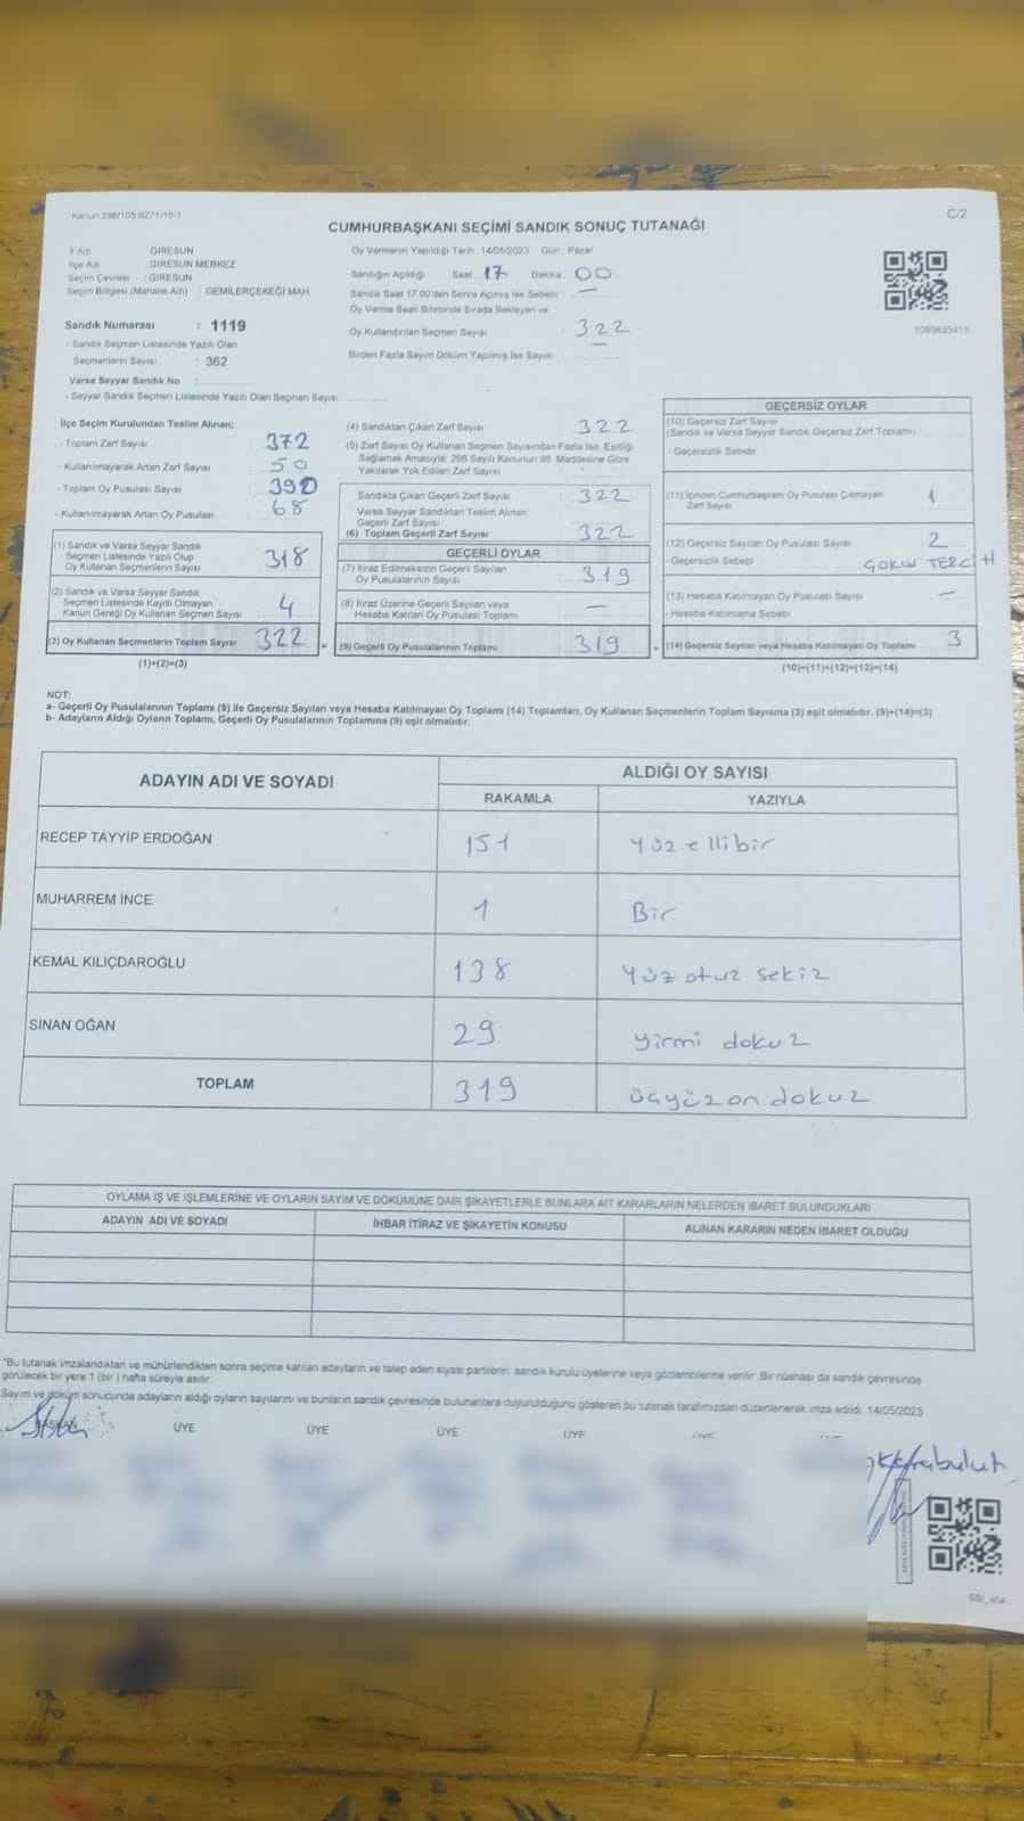 Kanun 298/105
C/2
CUMHURBAŞKANI SEÇİMİ SANDIK SONUÇ TUTANAĞI
İl Adı GİRESUN
İlçe Adı GİRESUN MERKEZ
Seçim Çevresi : GİRESUN
Seçim Bölgesi (Mahalle Adı) : GEMİLERÇEKEĞİ MAH.
Sandık Numarası : 1119
- Sandık Seçmen Listesinde Yazılı Olan
Seçmenlerin Sayısı : 362
Varsa Seyyar Sandık No :
- Seyyar Sandık Seçmen Listesinde Yazılı Olan Seçmen Sayısı
Oy Vermenin Yapıldığı Tarih : 14/05/2023 Gün : Pazar
Sandığın Açıldığı Saat 17 Dakika 00
Sandık Saat 17.00'den Sonra Açılmış İse Sebebi —
Oy Verme Saati Bitiminde Sırada Bekleyen ve
Oy Kullandırılan Seçmen Sayısı 322
Birden Fazla Sayım Döküm Yapılmış İse Sayısı
İlçe Seçim Kurulundan Teslim Alınan;
- Toplam Zarf Sayısı 372
- Kullanılmayarak Artan Zarf Sayısı 50
- Toplam Oy Pusulası Sayısı 390
- Kullanılmayarak Artan Oy Pusulası 68
(1) Sandık ve Varsa Seyyar Sandık
Seçmen Listesinde Yazılı Olup
Oy Kullanan Seçmenlerin Sayısı 318
(2) Sandık ve Varsa Seyyar Sandık
Seçmen Listesinde Kayıtlı Olmayan
Kanun Gereği Oy Kullanan Seçmen Sayısı 4
(3) Oy Kullanan Seçmenlerin Toplam Sayısı 322
(1)+(2)=(3)
(4) Sandıktan Çıkan Zarf Sayısı 322
(5) Zarf Sayısı Oy Kullanan Seçmen Sayısından Fazla İse, Eşitliği
Sağlamak Amacıyla; 298 Sayılı Kanunun 98. Maddesine Göre
Yakılarak Yok Edilen Zarf Sayısı
Sandıkta Çıkan Geçerli Zarf Sayısı 322
Varsa Seyyar Sandıktan Teslim Alınan
Geçerli Zarf Sayısı
(6) Toplam Geçerli Zarf Sayısı 322
GEÇERLİ OYLAR
(7) İtiraz Edilmeksizin Geçerli Sayılan
Oy Pusulalarının Sayısı 319
(8) İtiraz Üzerine Geçerli Sayılan veya
Hesaba Katılan Oy Pusulası Toplamı —
(9) Geçerli Oy Pusulalarının Toplamı 319
GEÇERSİZ OYLAR
(10) Geçersiz Zarf Sayısı
(Sandık ve Varsa Seyyar Sandık Geçersiz Zarf Toplamı)
- Geçersizlik Sebebi
(11) İçinden Cumhurbaşkanı Oy Pusulası Çıkmayan
Zarf Sayısı 1
(12) Geçersiz Sayılan Oy Pusulası Sayısı 2
- Geçersizlik Sebebi ÇOKLU TERCİH
(13) Hesaba Katılmayan Oy Pusulası Sayısı —
- Hesaba Katılmama Sebebi
(14) Geçersiz Sayılan veya Hesaba Katılmayan Oy Toplamı 3
(10)+(11)+(12)+(13)=(14)
NOT:
a- Geçerli Oy Pusulalarının Toplamı (9) ile Geçersiz Sayılan veya Hesaba Katılmayan Oy Toplamı (14) Toplamları, Oy Kullanan Seçmenlerin Toplam Sayısına (3) eşit olmalıdır. (9)+(14)=(3)
b- Adayların Aldığı Oyların Toplamı, Geçerli Oy Pusulalarının Toplamına (9) eşit olmalıdır.
ADAYIN ADI VE SOYADI
ALDIĞI OY SAYISI
RAKAMLA YAZIYLA
RECEP TAYYİP ERDOĞAN 151 Yüzellibir
MUHARREM İNCE 1 Bir
KEMAL KILIÇDAROĞLU 138 Yüz otuz sekiz
SİNAN OĞAN 29 yirmi dokuz
TOPLAM 319 üçyüzon dokuz
OYLAMA İŞ VE İŞLEMLERİNE VE OYLARIN SAYIM VE DÖKÜMÜNE DAİR ŞİKAYETLERLE BUNLARA AİT KARARLARIN NELERDEN İBARET BULUNDUKLARI
ADAYIN ADI VE SOYADI İHBAR İTİRAZ VE ŞİKAYETİN KONUSU ALINAN KARARIN NEDEN İBARET OLDUĞU
"Bu tutanak imzalandıktan ve mühürlendikten sonra seçime katılan adayların ve talep eden siyasi partilerin sandık kurulu üyelerine veya gözlemcilerine verilir. Bir nüshası da sandık çevresinde
görülecek bir yere 1 (bir) hafta süreyle asılır.
Sayım ve döküm sonucunda adayların aldığı oyların sayılarını ve bunların sandık çevresinde bulunanlara duyurulduğunu gösteren bu tutanak tarafımızdan düzenlenerek imza edildi. 14/05/2023
BAŞKAN ÜYE ÜYE ÜYE ÜYE
Karabulut